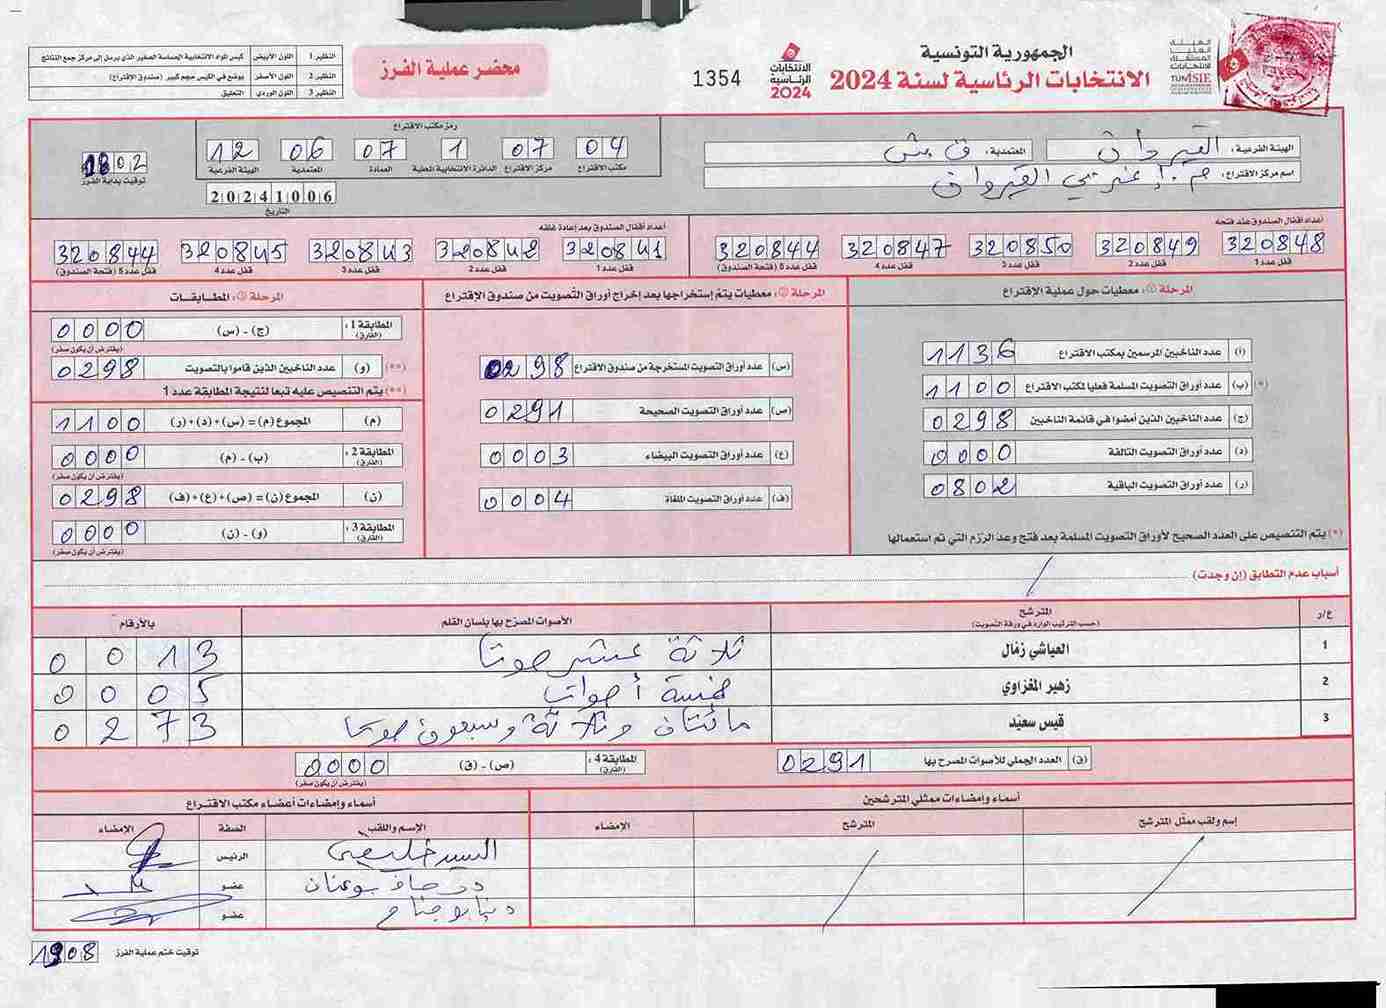 الجمهورية التونسية
الانتخابات الرئاسية لسنة 2024
الهيئة العليا المستقلة للانتخابات
TUNISIE
الانتخابات الرئاسية 2024
1354
محضر عملية الفرز
النظير 1 اللون الأبيض كيس المواد الانتخابية الحساسة الصغير الذي يرسل إلى مركز جمع النتائج
النظير 2 اللون الأصفر يوضع في الكيس مهم كبير (صندوق الإقتراع)
النظير 3 اللون الوردي التعليق
الهيئة الفرعية : القيروان المعتمدية :
اسم مركز الاقتراع : القيروان
رمز مكتب الاقتراع
04 07 1 07 06 12
مكتب الاقتراع مركز الاقتراع الدائرة الانتخابية المحلية العمادة المعتمدية الهيئة الفرعية
20241006
التاريخ
1802
توقيت بداية الفرز
أعداد أقفال الصندوق عند فتحه
320848 320849 320850 320847 320844
قفل عدد 1 قفل عدد 2 قفل عدد 3 قفل عدد 4 قفل عدد 5 (فتحة الصندوق)
أعداد أقفال الصندوق بعد إعادة غلقه
320841 320842 320843 320845 320844
قفل عدد 1 قفل عدد 2 قفل عدد 3 قفل عدد 4 قفل عدد 5 (فتحة الصندوق)
المرحلة ① : معطيات حول عملية الإقتراع
(أ) عدد الناخبين المرسمين بمكتب الاقتراع 1136
(*) (ب) عدد أوراق التصويت المسلمة فعليا لمكتب الاقتراع 1100
(ج) عدد الناخبين الذين أمضوا في قائمة الناخبين 0298
(د) عدد أوراق التصويت التالفة 0000
(ر) عدد أوراق التصويت الباقية 0802
(*) يتم التنصيص على العدد الصحيح لأوراق التصويت المسلمة بعد فتح وعد الرزم التي تم استعمالها
المرحلة ② : معطيات يتم إستخراجها بعد إخراج أوراق التصويت من صندوق الإقتراع
(س) عدد أوراق التصويت المستخرجة من صندوق الاقتراع 0298
(ص) عدد أوراق التصويت الصحيحة 0291
(ع) عدد أوراق التصويت البيضاء 0003
(ف) عدد أوراق التصويت الملغاة 0004
المرحلة ③ : المطابقات
المطابقة 1 : (الفارق) (ج) - (س) 0000
(يفترض أن يكون صفر)
(**) (و) عدد الناخبين الذين قاموا بالتصويت 0298
(**) يتم التنصيص عليه تبعا لنتيجة المطابقة عدد 1
(م) المجموع (م) = (س) + (د) + (ر) 1100
المطابقة 2 : (الفارق) (ب) - (م) 0000
(يفترض أن يكون صفر)
(ن) المجموع (ن) = (ص) + (ع) + (ف) 0298
المطابقة 3 : (الفارق) (و) - (ن) 0000
(يفترض أن يكون صفر)
أسباب عدم التطابق (إن وجدت) /
ع/ر المترشح (حسب الترتيب الوارد في ورقة التصويت) الأصوات المصرح بها بلسان القلم بالأرقام
1 العياشي زمال ثلاثة عشر صوتا 0013
2 زهير المغزاوي خمسة أصوات 0005
3 قيس سعيد مائتان وثلاثة وسبعون صوتا 0273
(ق) العدد الجملي للأصوات المصرح بها 0291
المطابقة 4 : (الفارق) (ص) - (ق) 0000
(يفترض أن يكون صفر)
أسماء وإمضاءات ممثلي المترشحين
إسم ولقب ممثل المترشح المترشح الإمضاء
أسماء وإمضاءات أعضاء مكتب الاقتراع
الإسم واللقب الصفة الإمضاء
السيد خليفي الرئيس
بوعنان عضو
دنيا جناح عضو
توقيت ختم عملية الفرز 1908